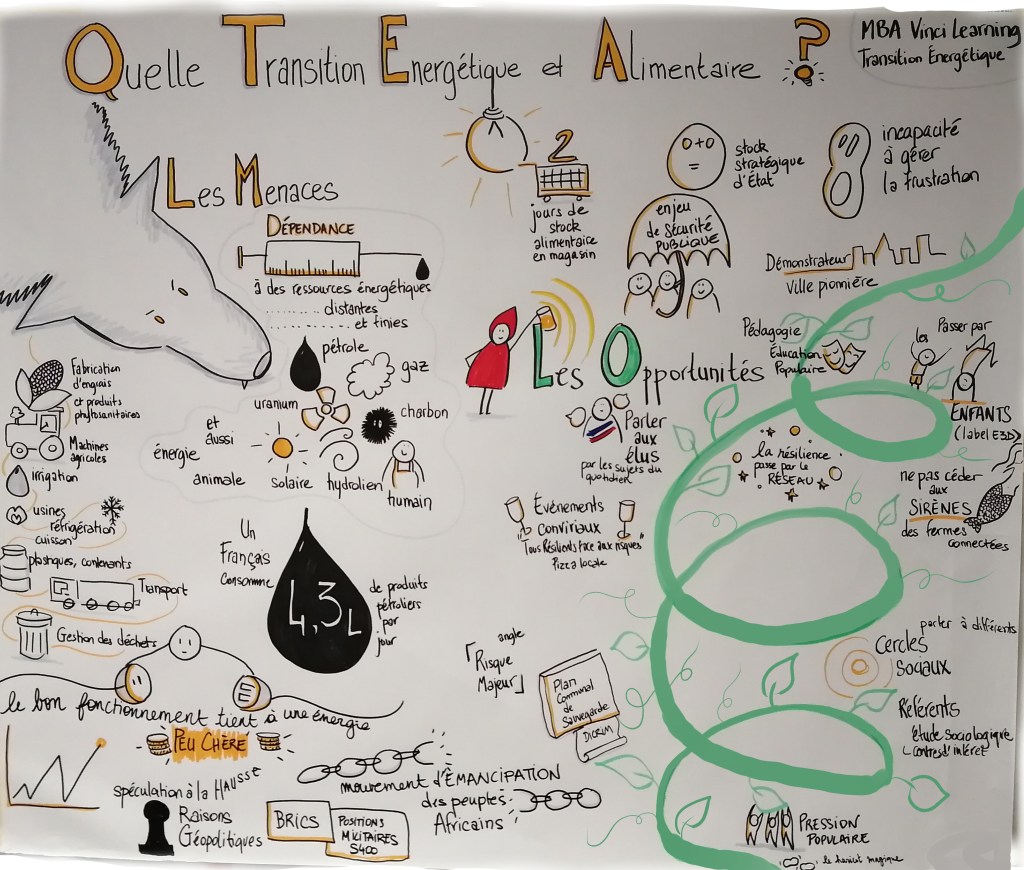 Quelle Transition Energétique et Alimentaire ?
MBA Vinci Learning
Transition Énergétique
Les Menaces
DÉPENDANCE
à des ressources énergétiques
distantes
et finies
pétrole
gaz
uranium
charbon
et
aussi
énergie
animale
solaire
hydrolien
humain
Fabrication
d'engrais
et produits
phytosanitaires
Machines
agricoles
Irrigation
usines
réfrigération
cuisson
plastiques, contenants
Transport
Gestion des déchets
Un
Français
consomme
4,3L
de produits
pétroliers
par
jour
le bon fonctionnement tient à une énergie
PEU CHÈRE
spéculation à la HAUSSE
Raisons
Géopolitiques
BRICS
POSITIONS
MILITAIRES
S400
mouvement d'ÉMANCIPATION
des peuples
Africains
2
jours de
stock
alimentaire
en magasin
stock
stratégique
d'État
enjeu
de sécurité
PUBLIQUE
incapacité
à gérer
la frustration
Les Opportunités
Démonstrateur
Ville pionnière
Pédagogie
Éducation
Populaire
les
Passer par
ENFANTS
(label E3D)
Parler
aux
élus
par les sujets du
quotidien
la résilience
passe par le
RÉSEAU
ne pas céder
aux
SIRÈNES
des fermes
connectées
Événements
conviviaux
"Tous Résilients face aux risques"
Pizza locale
angle
「Risque
Majeur」
Plan
Communal
de
Sauvegarde
DICRIM
parler à différents
Cercles
sociaux
Référents
étude sociologique
centres d'intérêt
PRESSION
POPULAIRE
le haricot magique